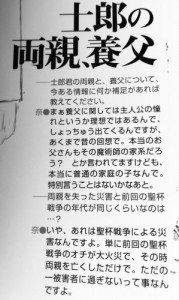 士郎の
両親、養父
――士郎君の両親と、養父について、
今ある情報に何か補足があれば
教えてください。
奈●まぁ養父に関しては主人公の憧
れというか理想ではあるんで、
しょっちゅう出てくるんですが、
あくまで昔の回想で。本当のお
父さんもその魔術師の家系だろ
う？　とか言われてますけども、
本当に普通の家庭の子なんで。
特別言うことはないかなあと。
――両親を失った災害と前回の聖杯
戦争の年代が同じくらいなのは
…？
奈●いや、あれは聖杯戦争による災
害なんですよ。単に前回の聖杯
戦争のオチが大火災で、その時
両親を亡くしただけで。ただの
一被害者に過ぎないって事なん
ですよ。